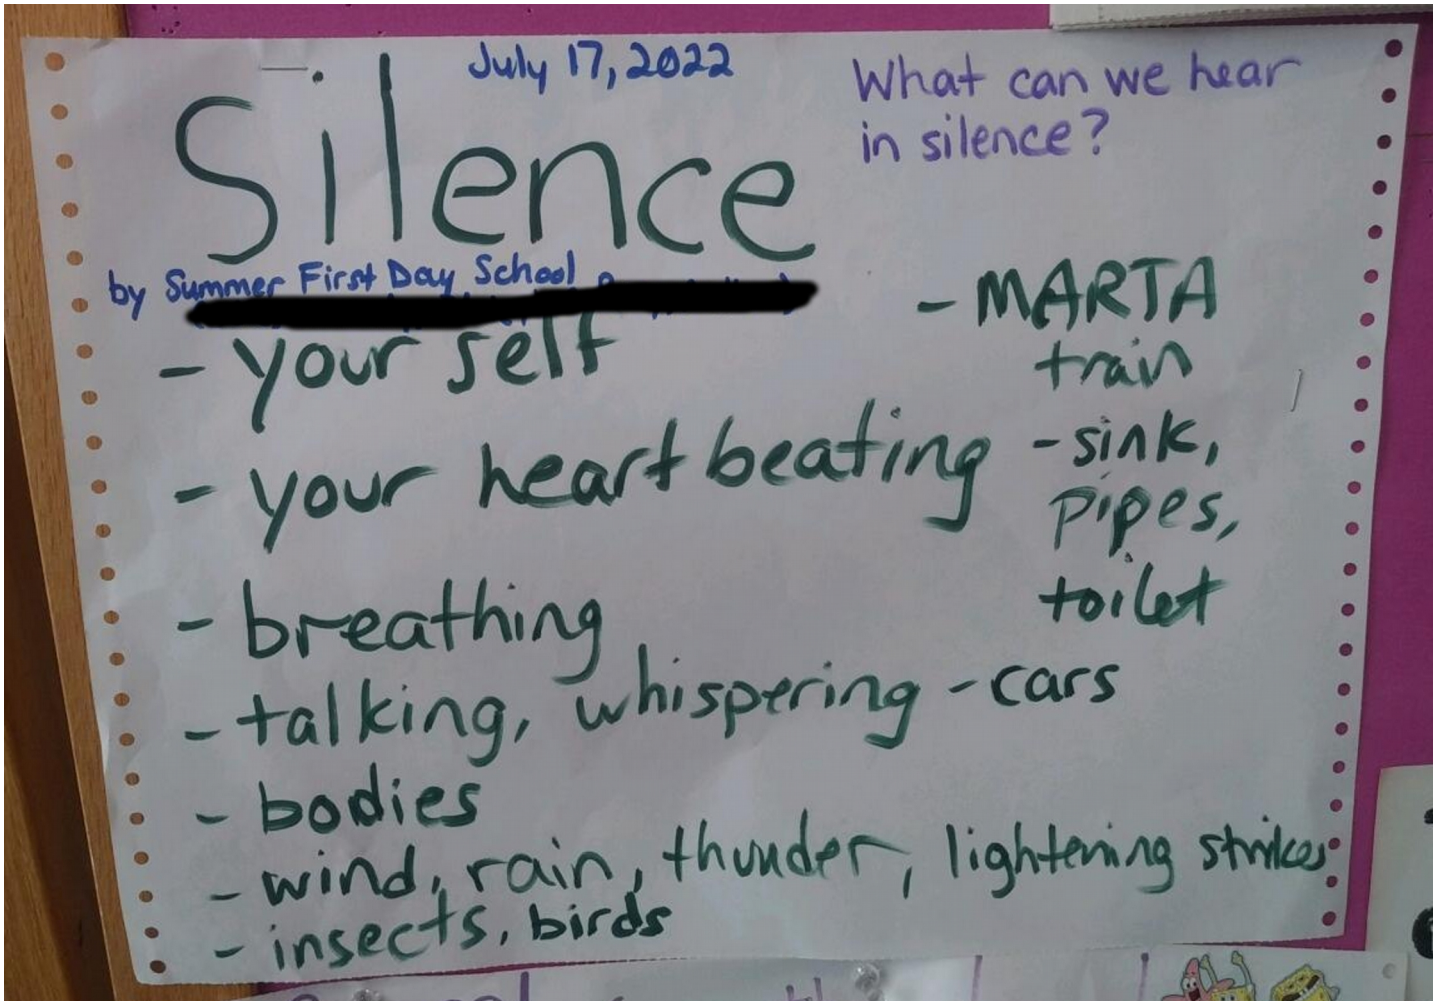 July 17, 2022
Silence
What can we hear
in silence?
by Summer First Day School
- your self
- your heart beating
- breathing
- talking, whispering
- bodies
- wind, rain, thunder, lightening strikes
- insects, birds
- MARTA
train
- sink,
pipes,
toilet
- cars